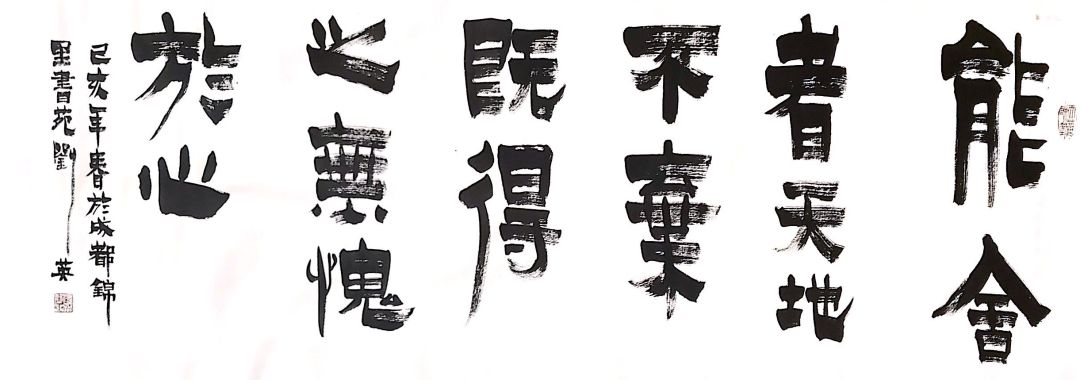 能會
者天地
不棄
既得
之無愧
於心
己亥年春於成都錦
里書苑劉英